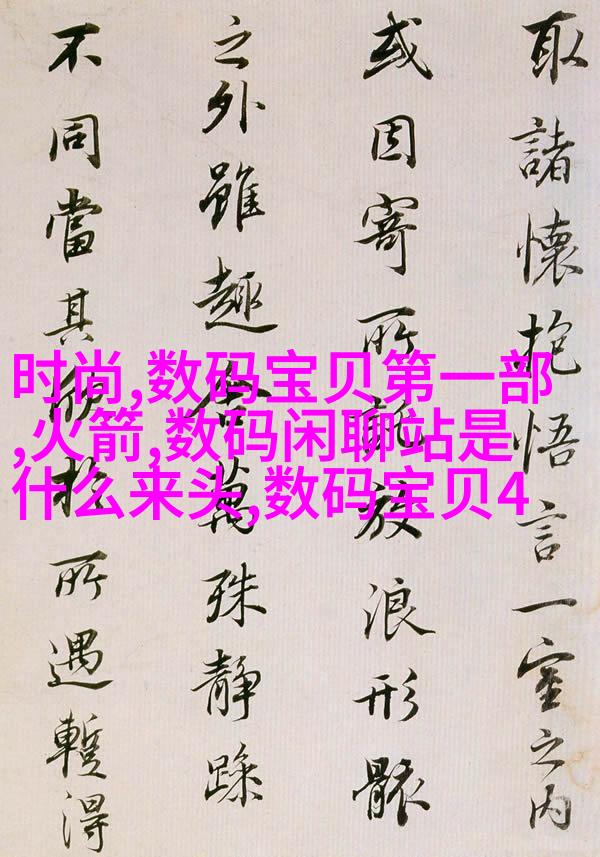 取諸懷抱悟言一室之內
或因寄所託放浪形骸
之外雖趣舍萬殊靜躁
不同當其欣於所遇暫得
时尚,数码宝贝第一部
,火箭,数码闲聊站是
什么来头,数码宝贝4